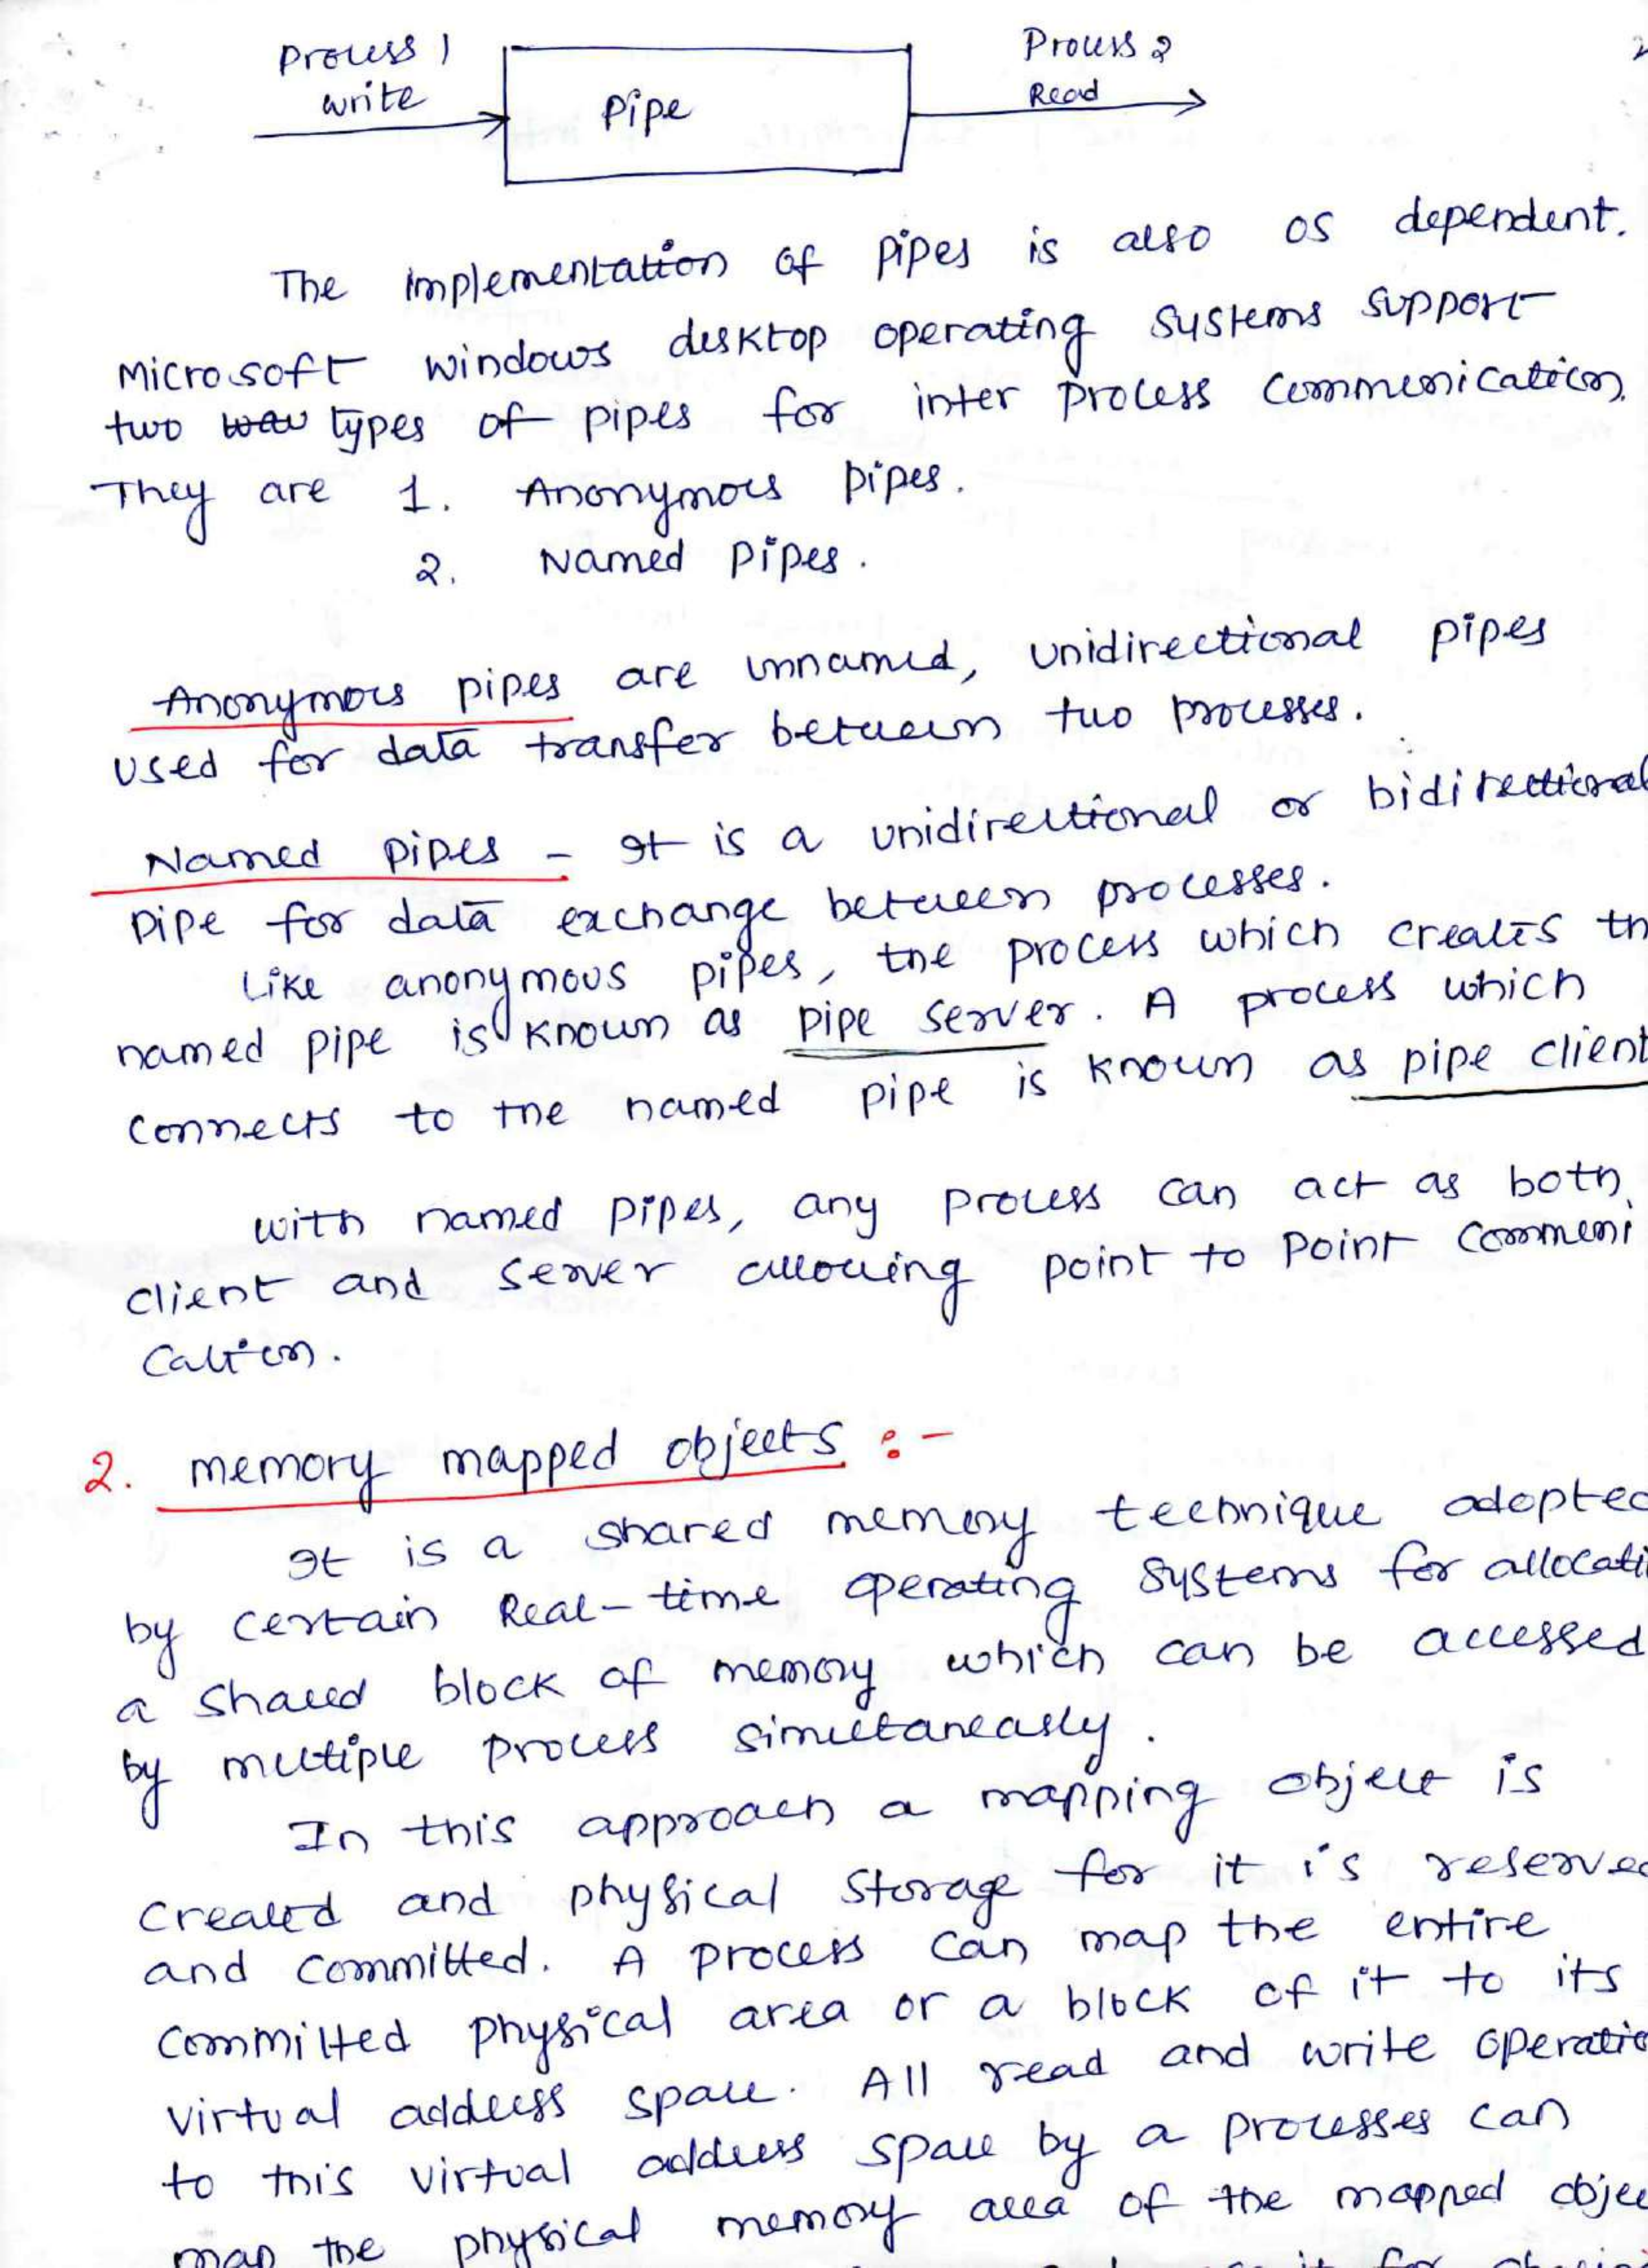 Process 1
write
Pipe
Process 2
Read
The implementation of pipes is also OS dependent.
Microsoft windows desktop operating systems support
two types of pipes for inter process communication.
They are 1. Anonymous pipes.
2. Named pipes.
Anonymous pipes are unnamed, unidirectional pipes
used for data transfer between two processes.
Named pipes - It is a unidirectional or bidirectional
pipe for data exchange between processes.
Like anonymous pipes, the process which creates th
named pipe is known as pipe server. A process which
connects to the named pipe is known as pipe client
with named pipes, any process can act as both
client and server allowing point to point communi
cation.
2. memory mapped objects :-
It is a shared memory technique adopted
by certain Real-time operating systems for allocati
a shared block of memory which can be accessed
by multiple process simultaneously.
In this approach a mapping object is
created and physical storage for it is reserved
and committed. A process can map the entire
committed physical area or a block of it to its
virtual address space. All read and write operatio
to this virtual address space by a processes can
map the physical memory area of the mapped objec
it for